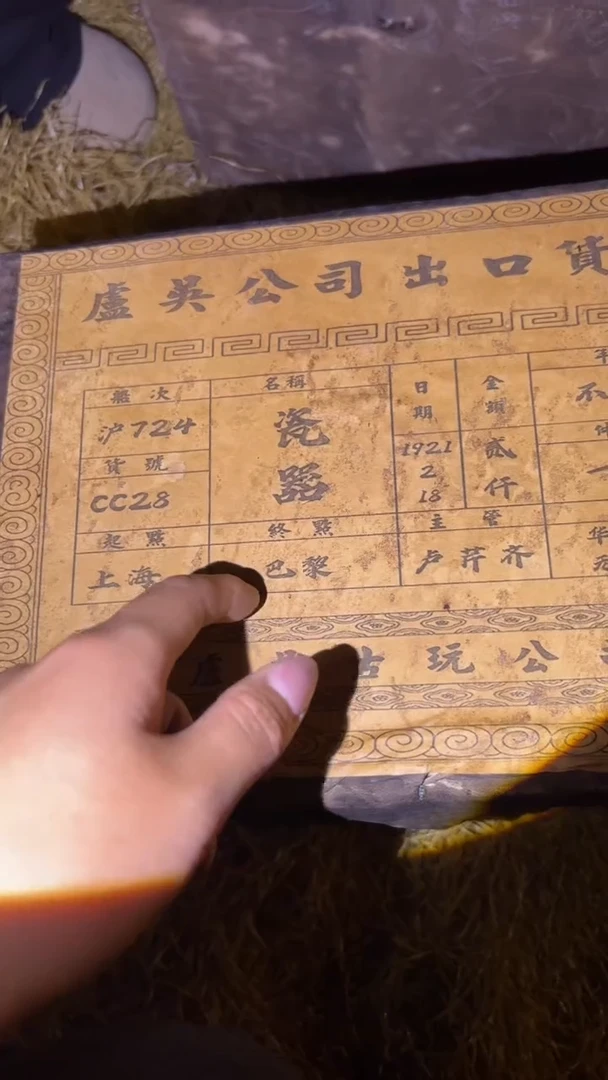 盧吳公司出口貨
艙次 名稱 日期 金額
沪724 瓷器 1921 2 18 贰仟 不
貨號
CC28
起點 終點 主管
上海 巴黎 卢芹齐
古玩公